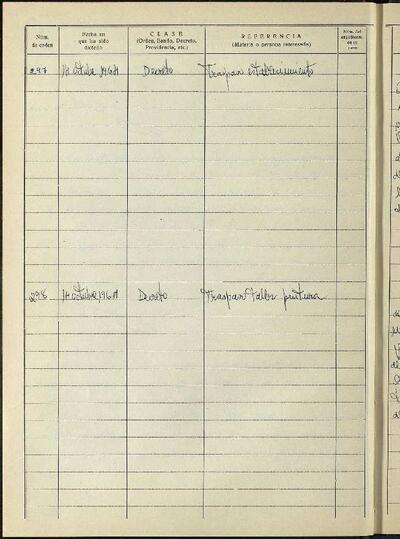 Núm. de orden
Fecha en que ha sido dictado
CLASE
(Orden, Bando, Decreto, Providencia, etc.)
REFERENCIA
(Materia o persona interesada)
Núm. del expediente en su caso
297 14 octubre 1964 Decreto Traspaso establecimiento
298 14 octubre 1964 Decreto Traspaso taller pintura